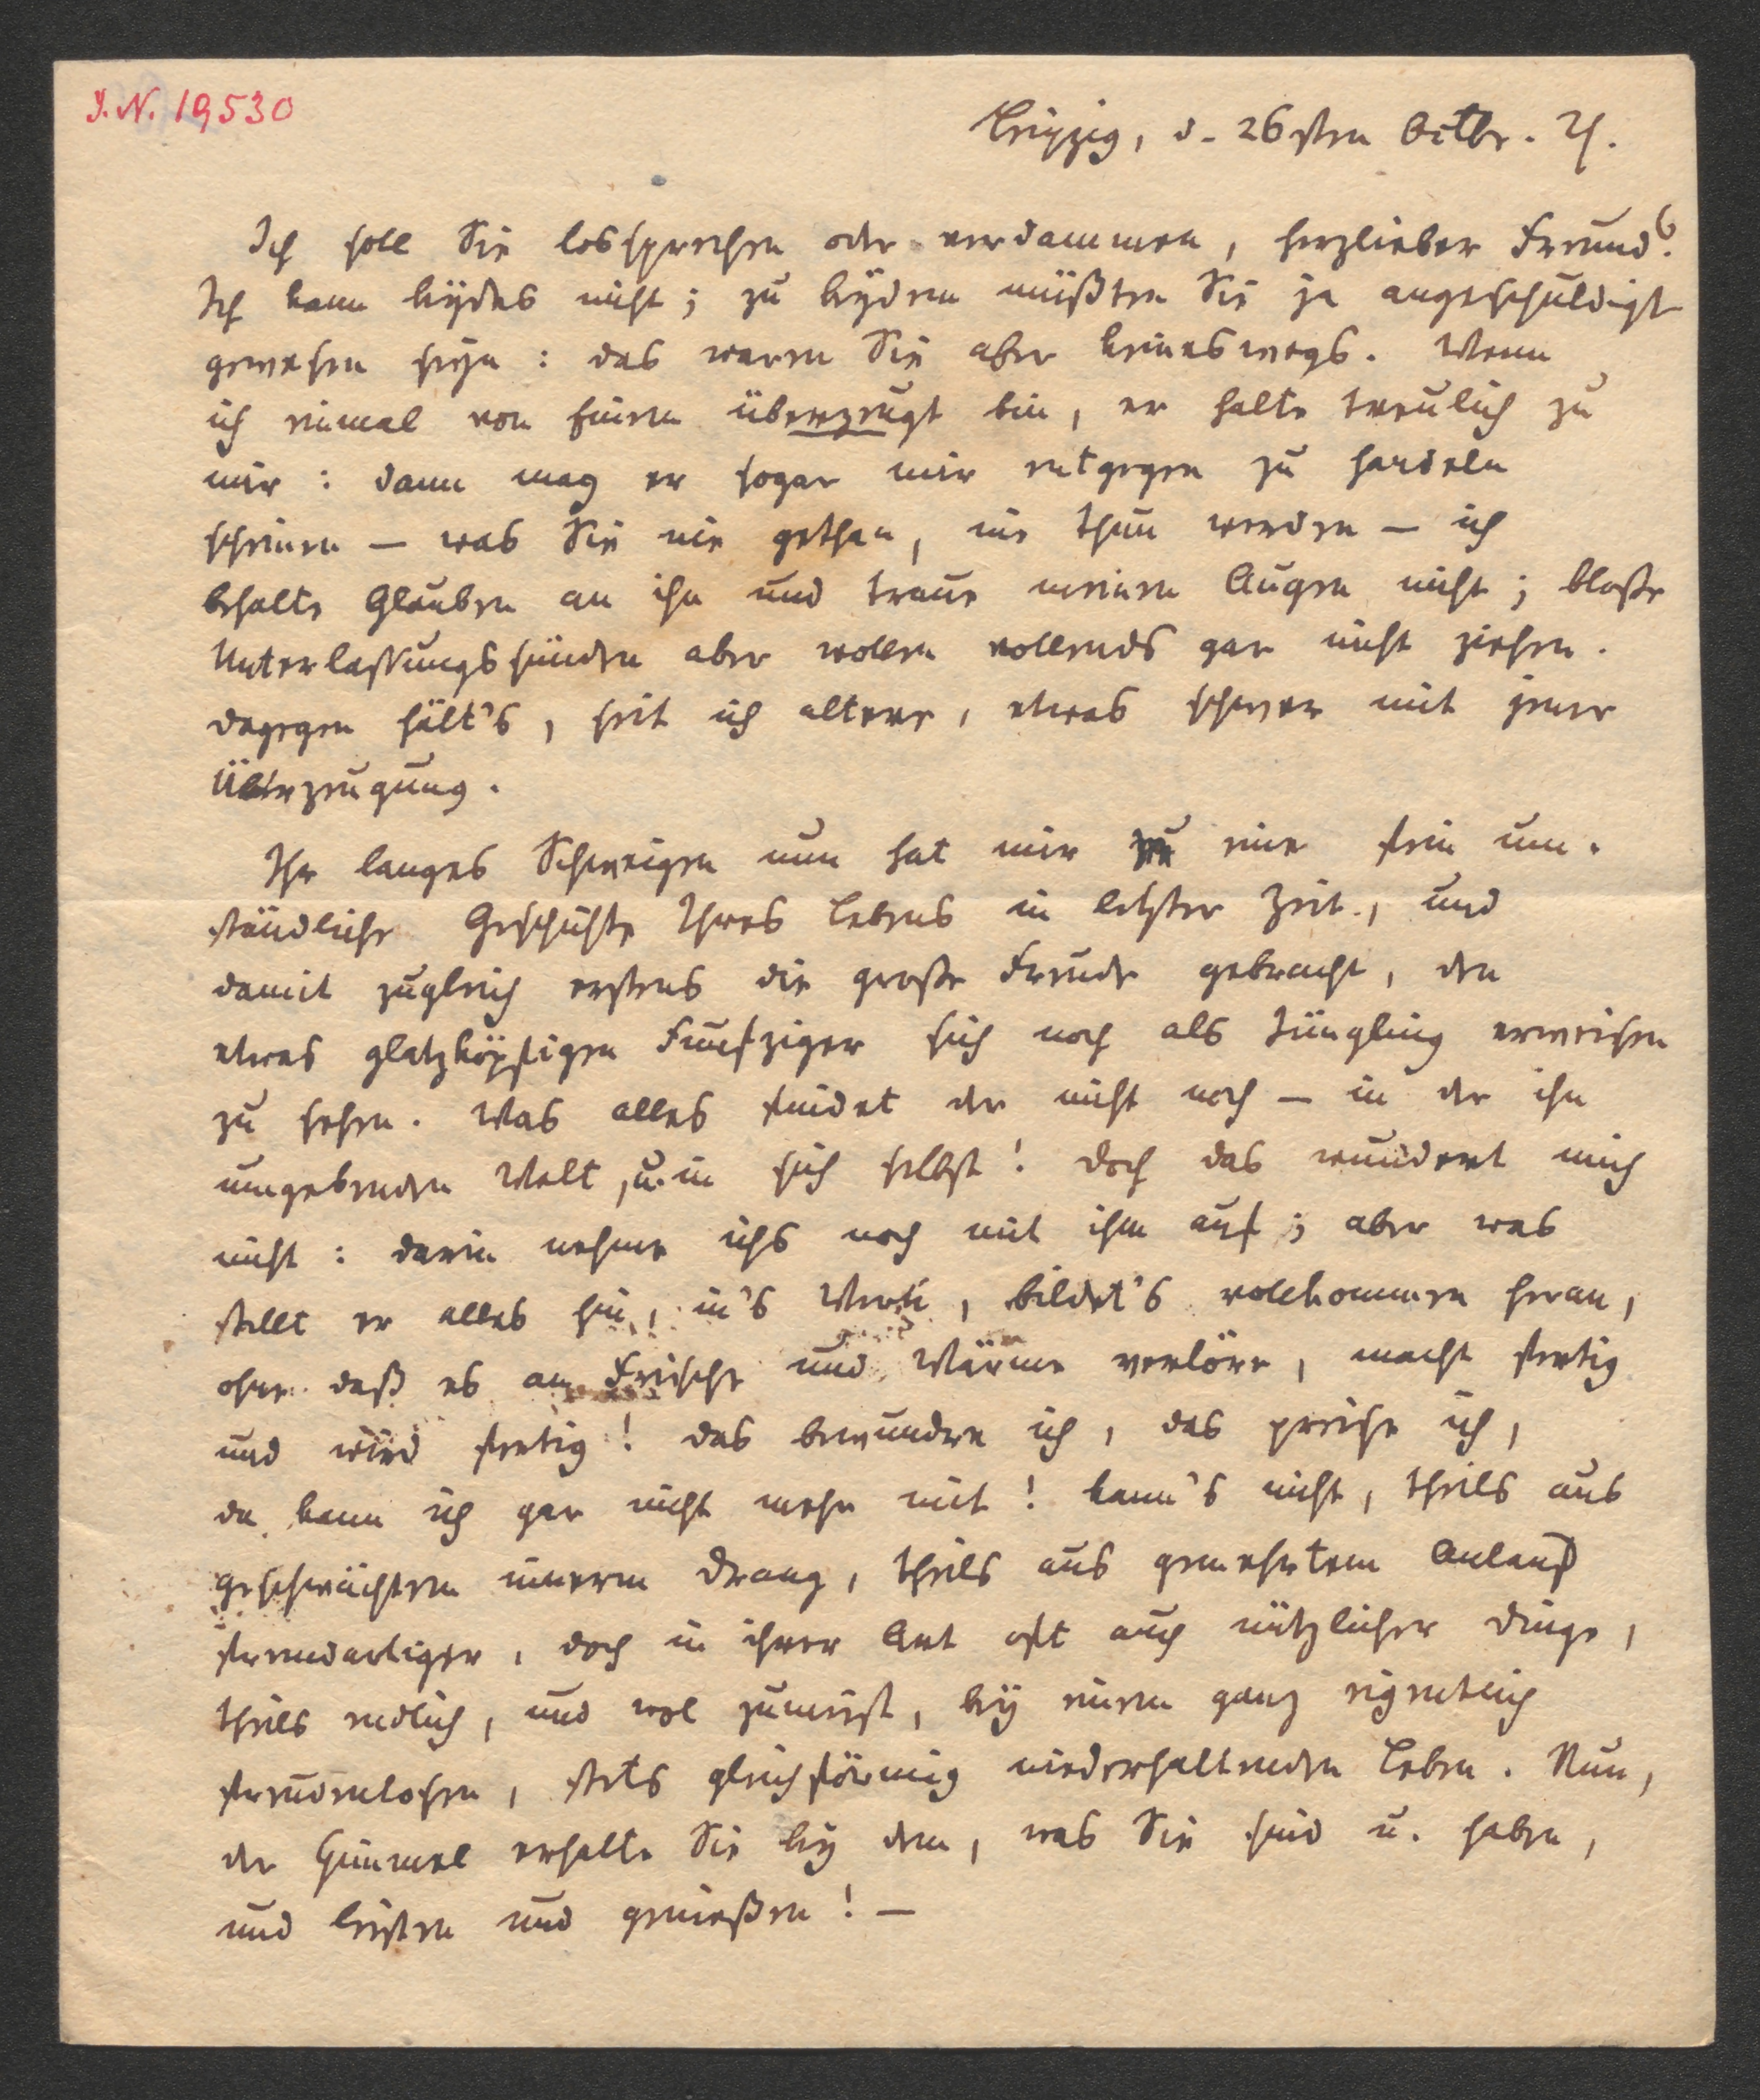 J. N. 19,530
Leipzig, d. 26sten Octbr. 21.
Ich soll Sie lossprechen oder verdammen, herzlieber Freund?
Ich kann beydes nicht; zu beydem müßten Sie ja angeschuldigt
gewesen seyn: das waren Sie aber keineswegs. Wenn
ich einmal von Einem überzeugt bin, er halte treulich zu
mir: dann mag er sogar mir entgegen zu handeln
scheinen – was Sie nie gethan, nie thun werden – ich
behalte Glauben an ihn und traue meinen Augen nicht; bloße
Unterlassungssünden aber wollen vollends gar nicht ziehen.
Dagegen hält's, seit ich altere, etwas schwer mit jener
Überzeugung.
Ihr langes Schweigen nun hat mir eine fein um-
ständliche Geschichte Ihres Lebens in letzter Zeit, und
damit zugleich erstens die große Freude gebracht, den
etwas glatzköpfigen Funfziger sich noch als Jüngling erweisen
zu sehen. Was alles findet der nicht noch – in der ihn
umgebenden Welt, u. in sich selbst! Doch das wundert mich
nicht: darin nehme ichs noch mit ihm auf; aber was
stellt er alles hin, in's Werk, bildet's vollkommen heran,
ohne daß es an Frische und Wärme verlöre, macht fertig
und wird fertig! Das bewundre ich, das preise ich,
da kann ich gar nicht mehr mit! kann's nicht, theils aus
geschwächtem innerm Drang, theils aus gemehrtem Anlauf
fremdartiger, doch in ihrer Art oft auch nützlicher Dinge,
theils endlich, und wol zumeist, bey einem ganz eigentlich
freudenlosen, stets gleichförmig niederhaltenden Leben. Nun,
der Himmel erhalte Sie bey dem, was Sie sind u. haben,
und leisten und genießen! –